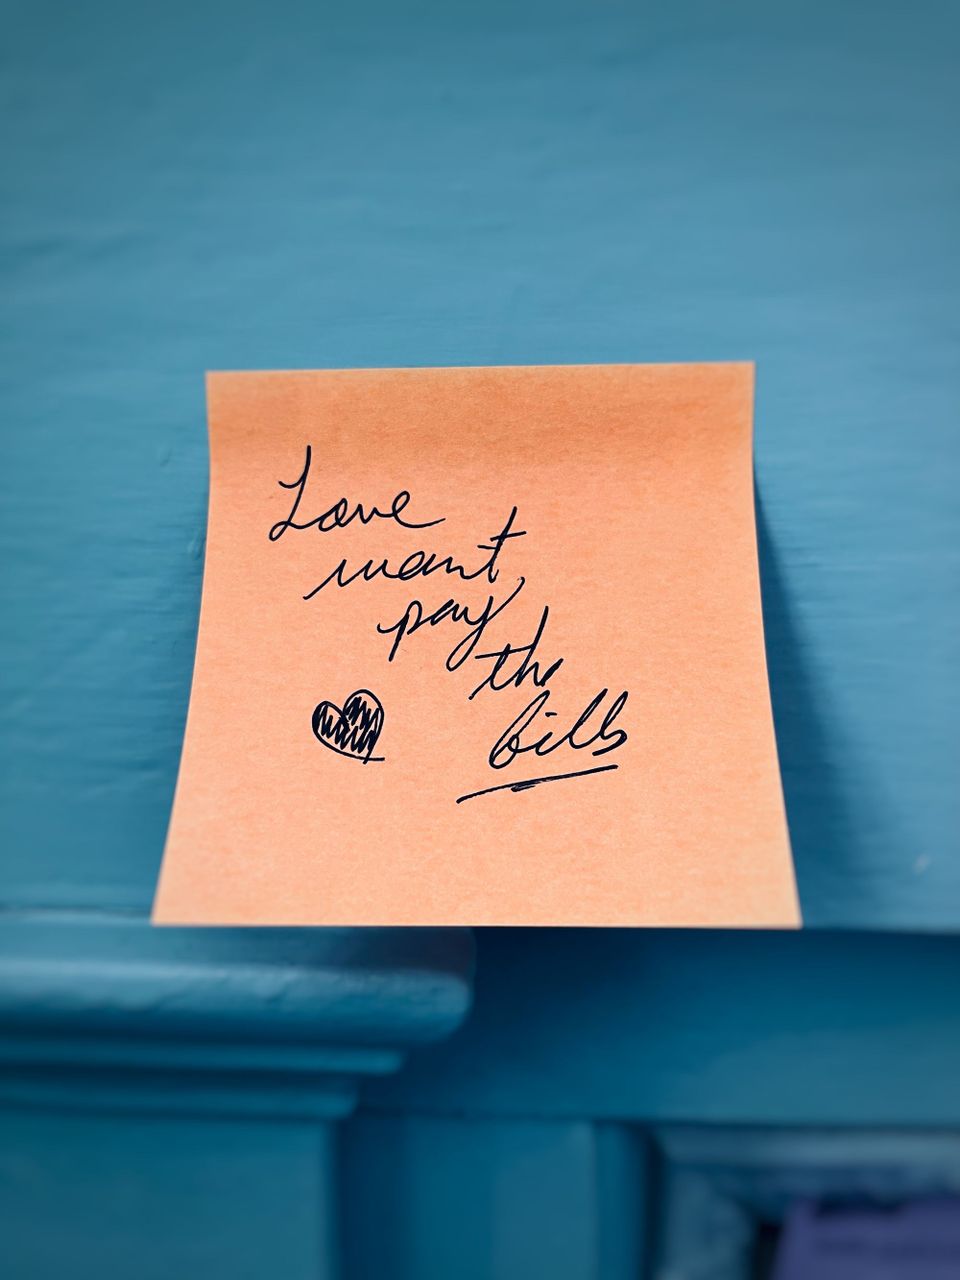 Love
want
pay
the
bills